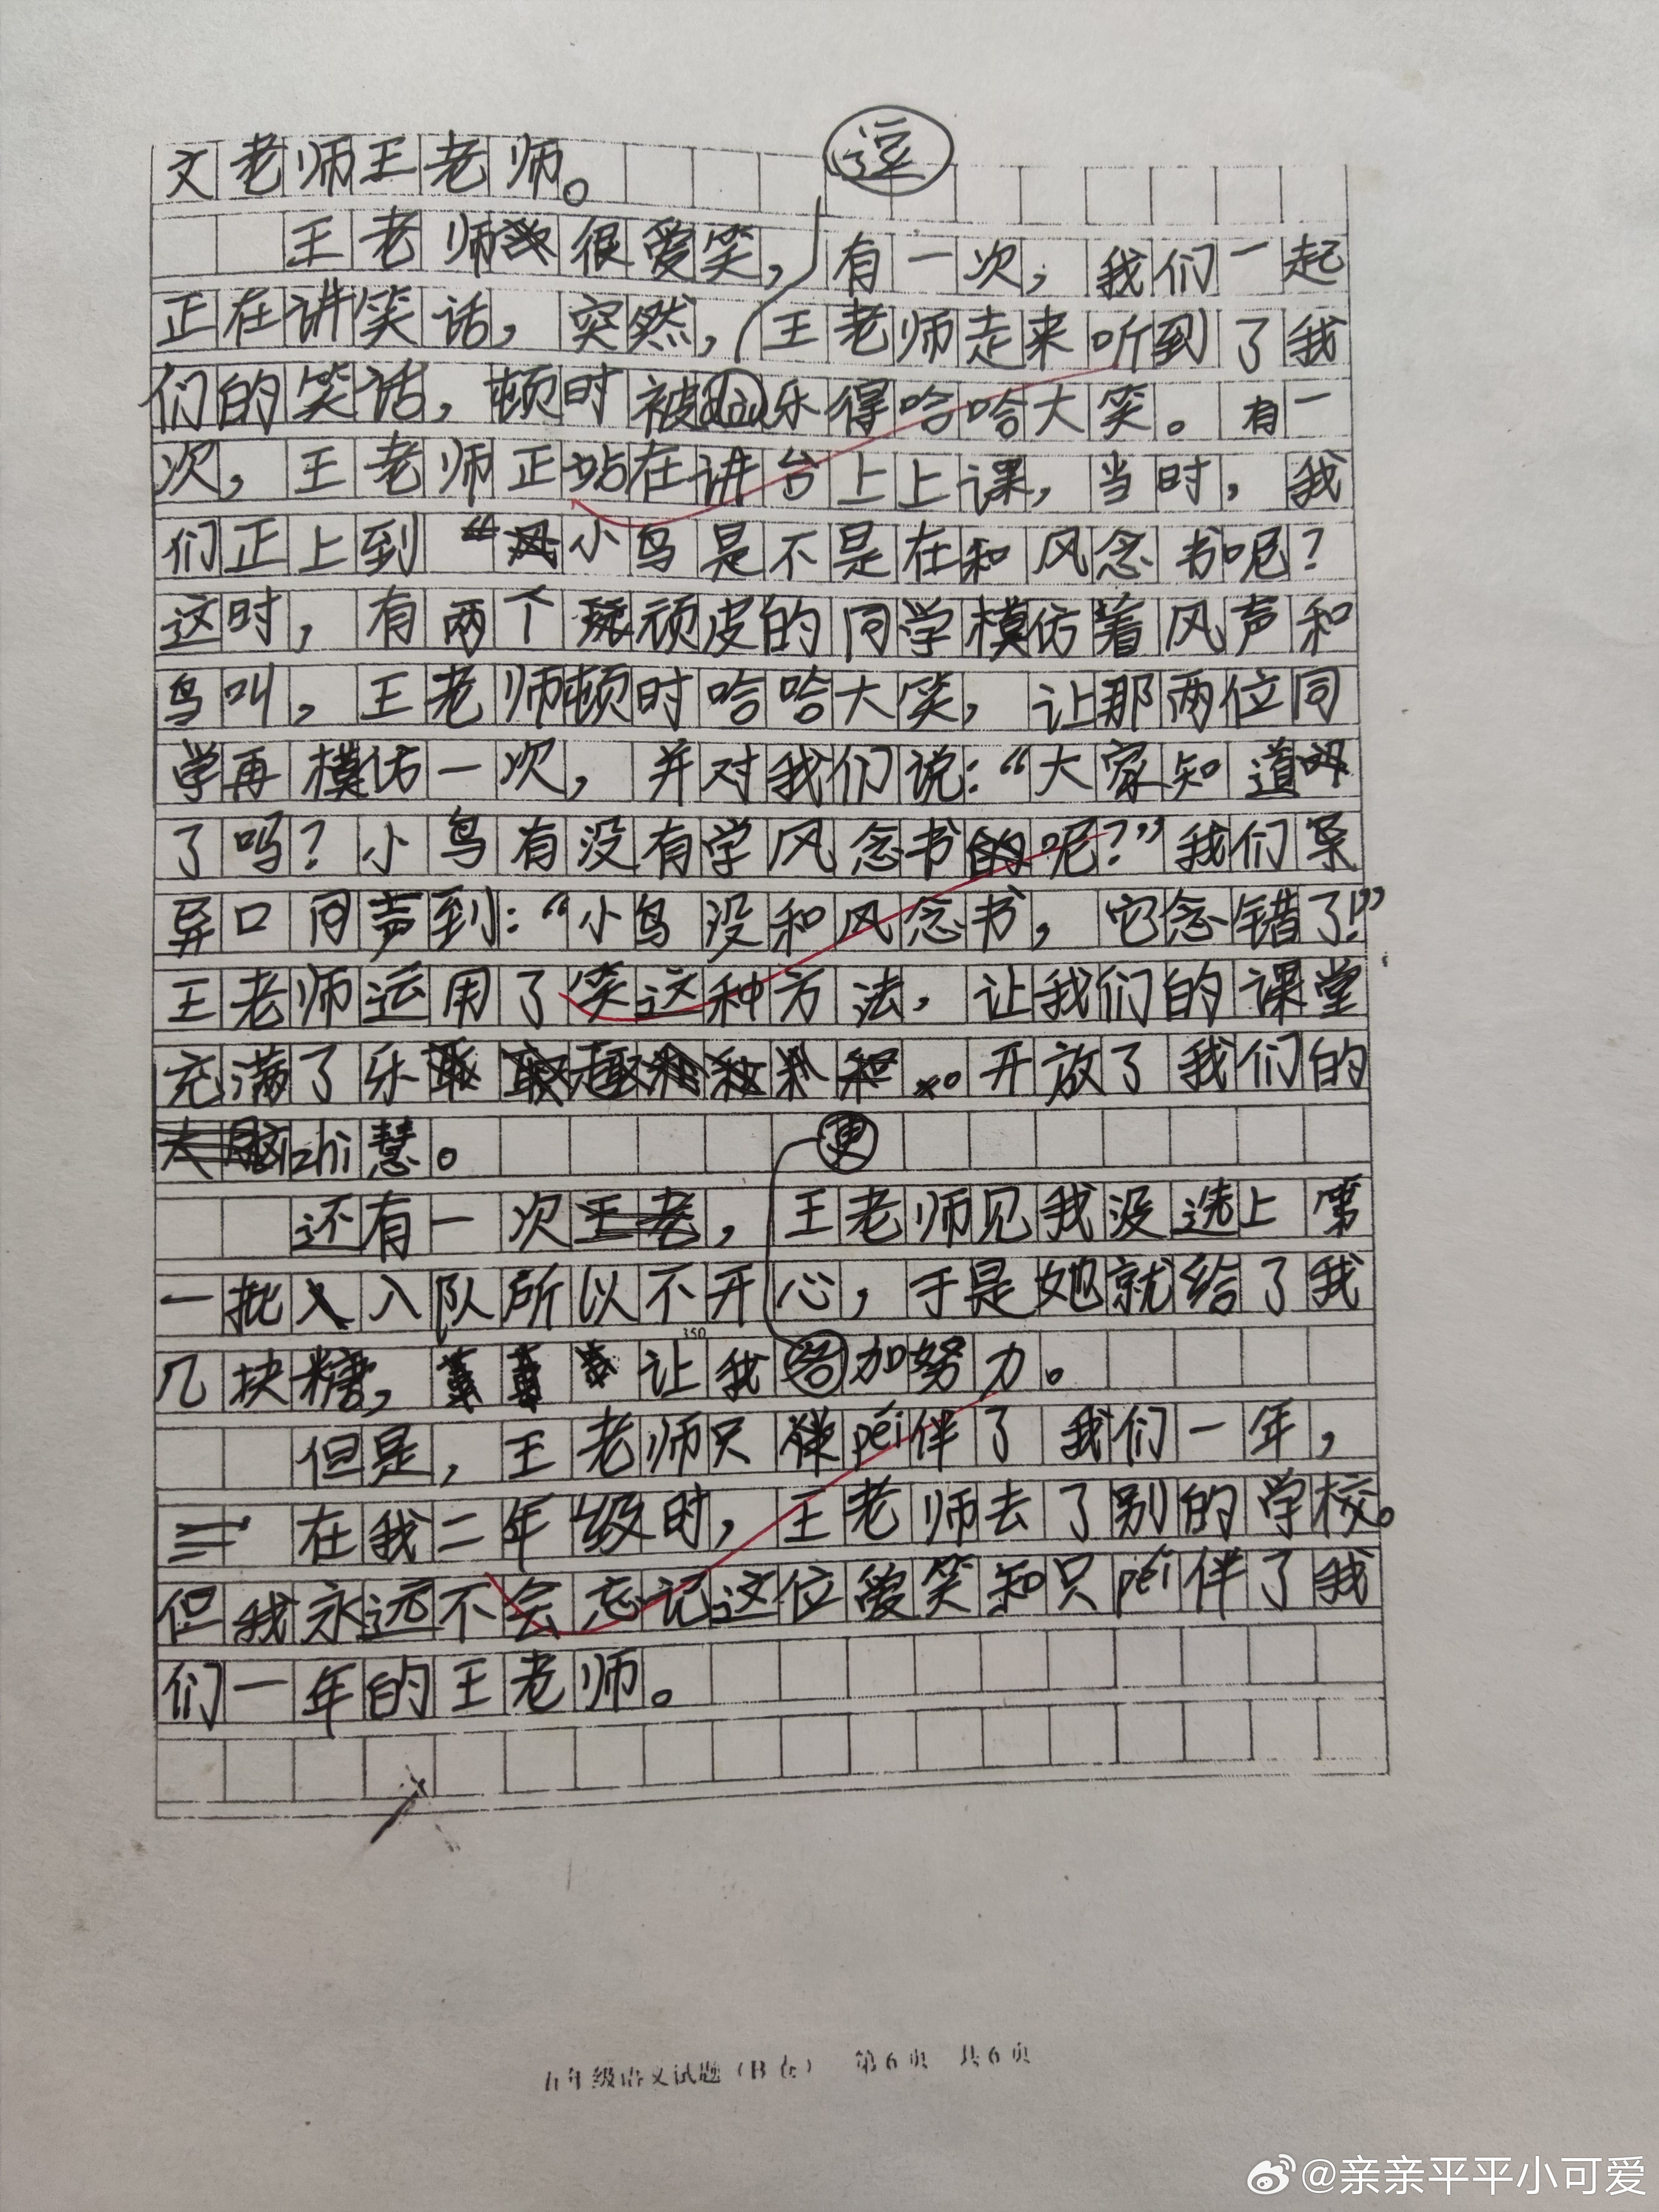 逗
文老师王老师。
王老师很爱笑，有一次，我们一起
正在讲笑话，突然，王老师走来听到了我
们的笑话，顿时被dòu乐得哈哈大笑。有一
次，王老师正站在讲台上上课，当时，我
们正上到“小鸟是不是在和风念书呢？
这时，有两个顽皮的同学模仿着风声和
鸟叫，王老师顿时哈哈大笑，让那两位同
学再模仿一次，并对我们说：“大家知道
了吗？小鸟有没有学风念书的呢？”我们
异口同声到：“小鸟没和风念书，它念错了！”
王老师运用了笑这种方法，让我们的课堂
充满了乐 开放了我们的
zhi慧。
更
还有一次，王老师见我没选上第
一批入队所以不开心，于是她就给了我
几块糖，让我加努力。
350
但是，王老师只péi伴了我们一年，
在我二年级时，王老师去了别的学校。
但我永远不会忘记这位爱笑和只péi伴了我
们一年的王老师。
五年级语文试题（B卷） 第6页 共6页
@亲亲平平小可爱